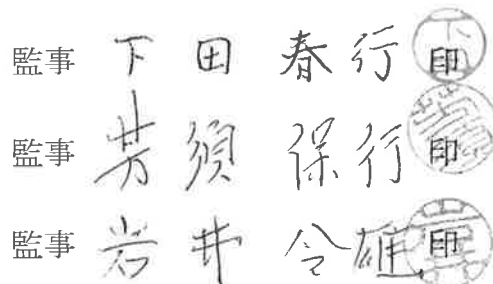 監事 下田 春行 印
監事 芳須 保行 印
監事 岩井 令雄 印